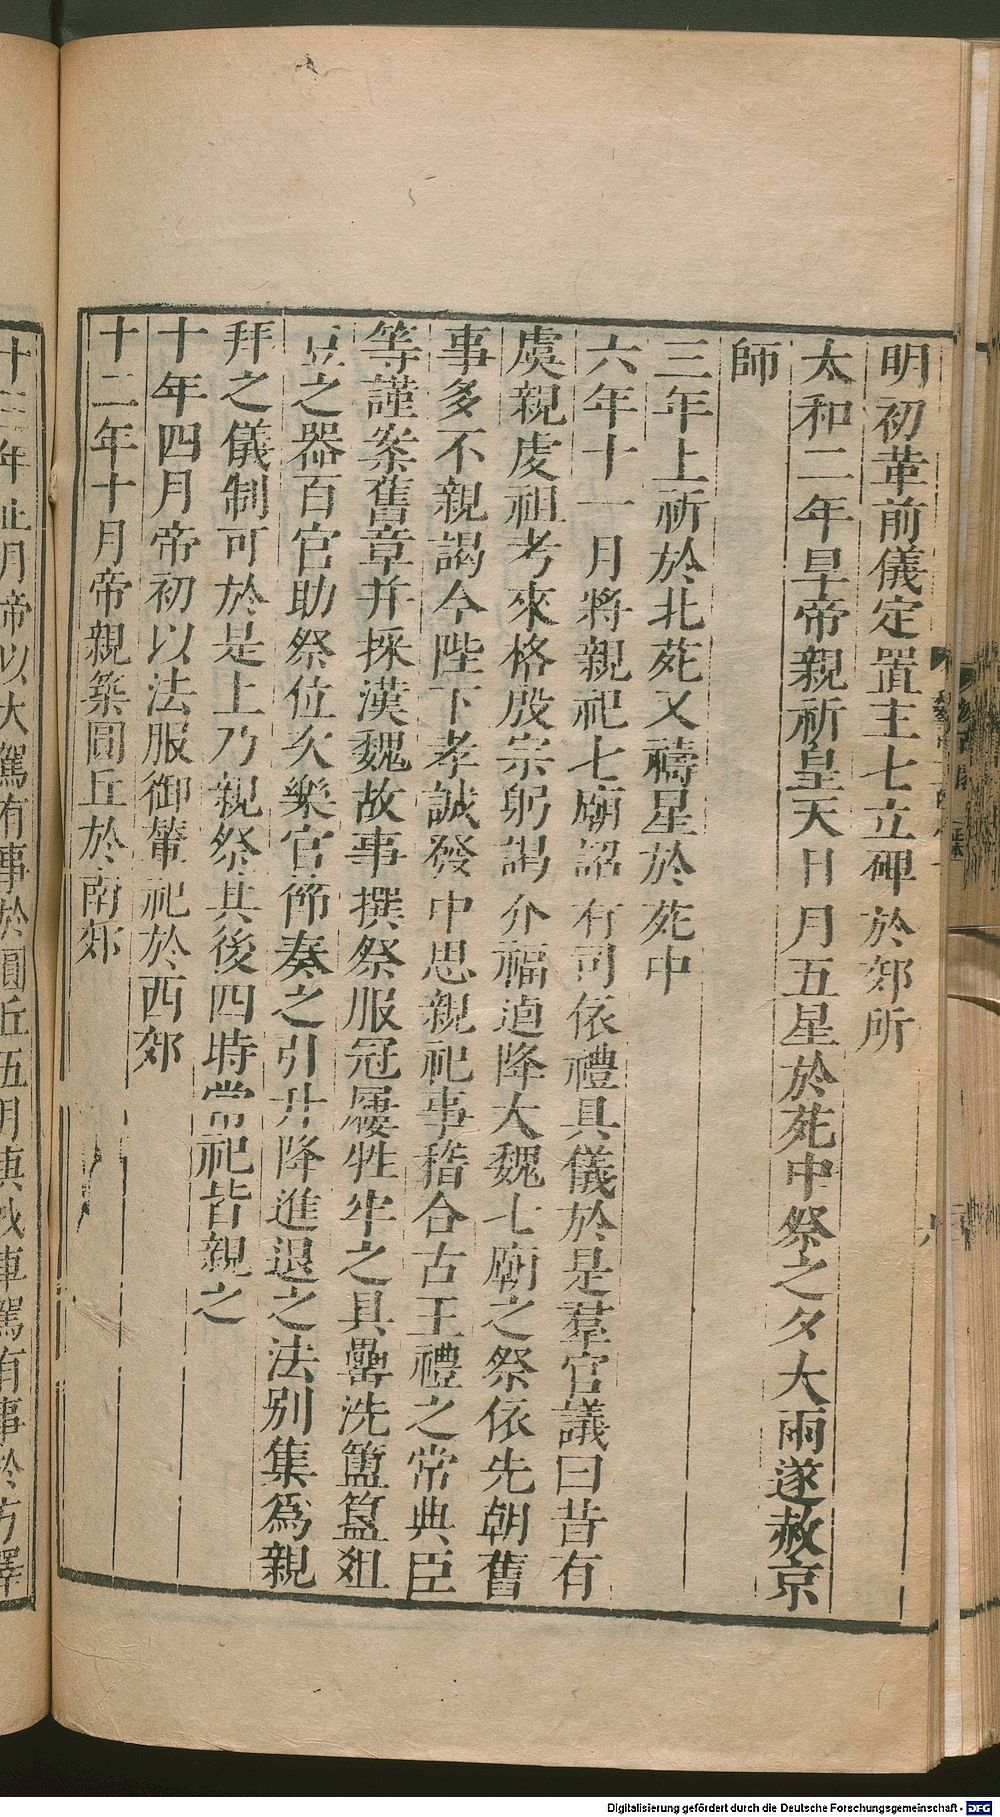 明初革前儀定置主七立碑於郊所
太和二年旱帝親祈皇天日月五星於苑中祭之夕大雨遂赦京
師
三年上祈於北苑又禱星於苑中
六年十一月將親祀七廟詔有司依禮具儀於是羣官議曰昔有
虞親虔祖考來格殷宗躬謁介福逌降大魏七廟之祭依先朝舊
事多不親謁今陛下孝誠發中思親祀事稽合古王禮之常典臣
等謹案舊章并採漢魏故事撰祭服冠屨牲牢之具罍洗簠簋俎
豆之器百官助祭位次樂官節奏之引升降進退之法別集爲親
拜之儀制可於是上乃親祭其後四時常祀皆親之
十年四月帝初以法服御輦祀於西郊
十二年十月帝親築圓丘於南郊
十三年正月帝以大駕有事於圓丘五月車駕有事於方澤
Digitalisierung gefördert durch die Deutsche Forschungsgemeinschaft - DFG